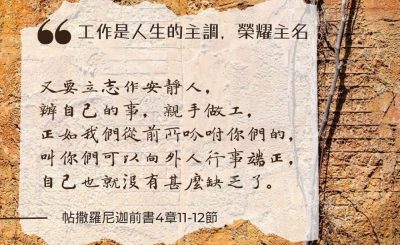 工作是人生的主調，榮耀主名。
又要立志作安靜人，
辦自己的事，親手做工，
正如我們從前所吩咐你們的，
叫你們可以向外人行事端正，
自己也就沒有甚麼缺乏了。
帖撒羅尼迦前書4章11-12節